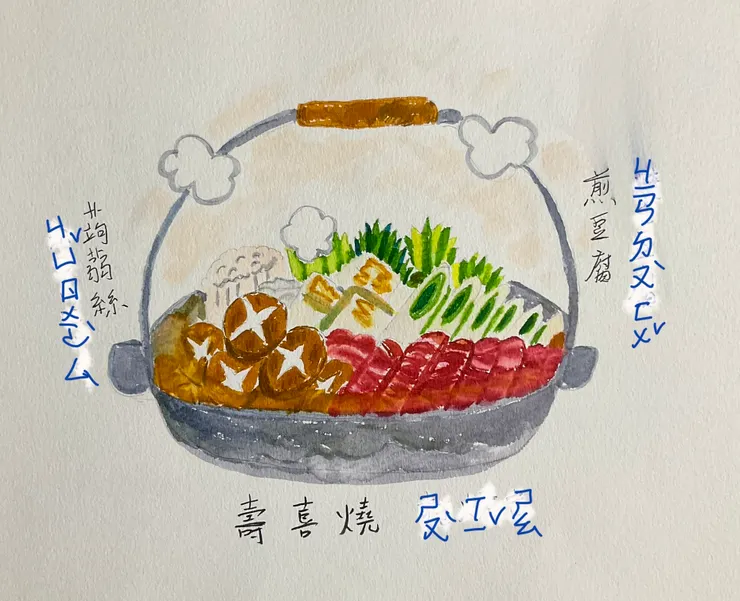 蒟蒻絲
ㄐㄩˇ ㄖㄨㄛˋ ㄙ
煎豆腐
ㄐㄧㄢ ㄉㄡˋ ㄈㄨˇ
壽喜燒 ㄕㄡˋ ㄒㄧˇ ㄕㄠ